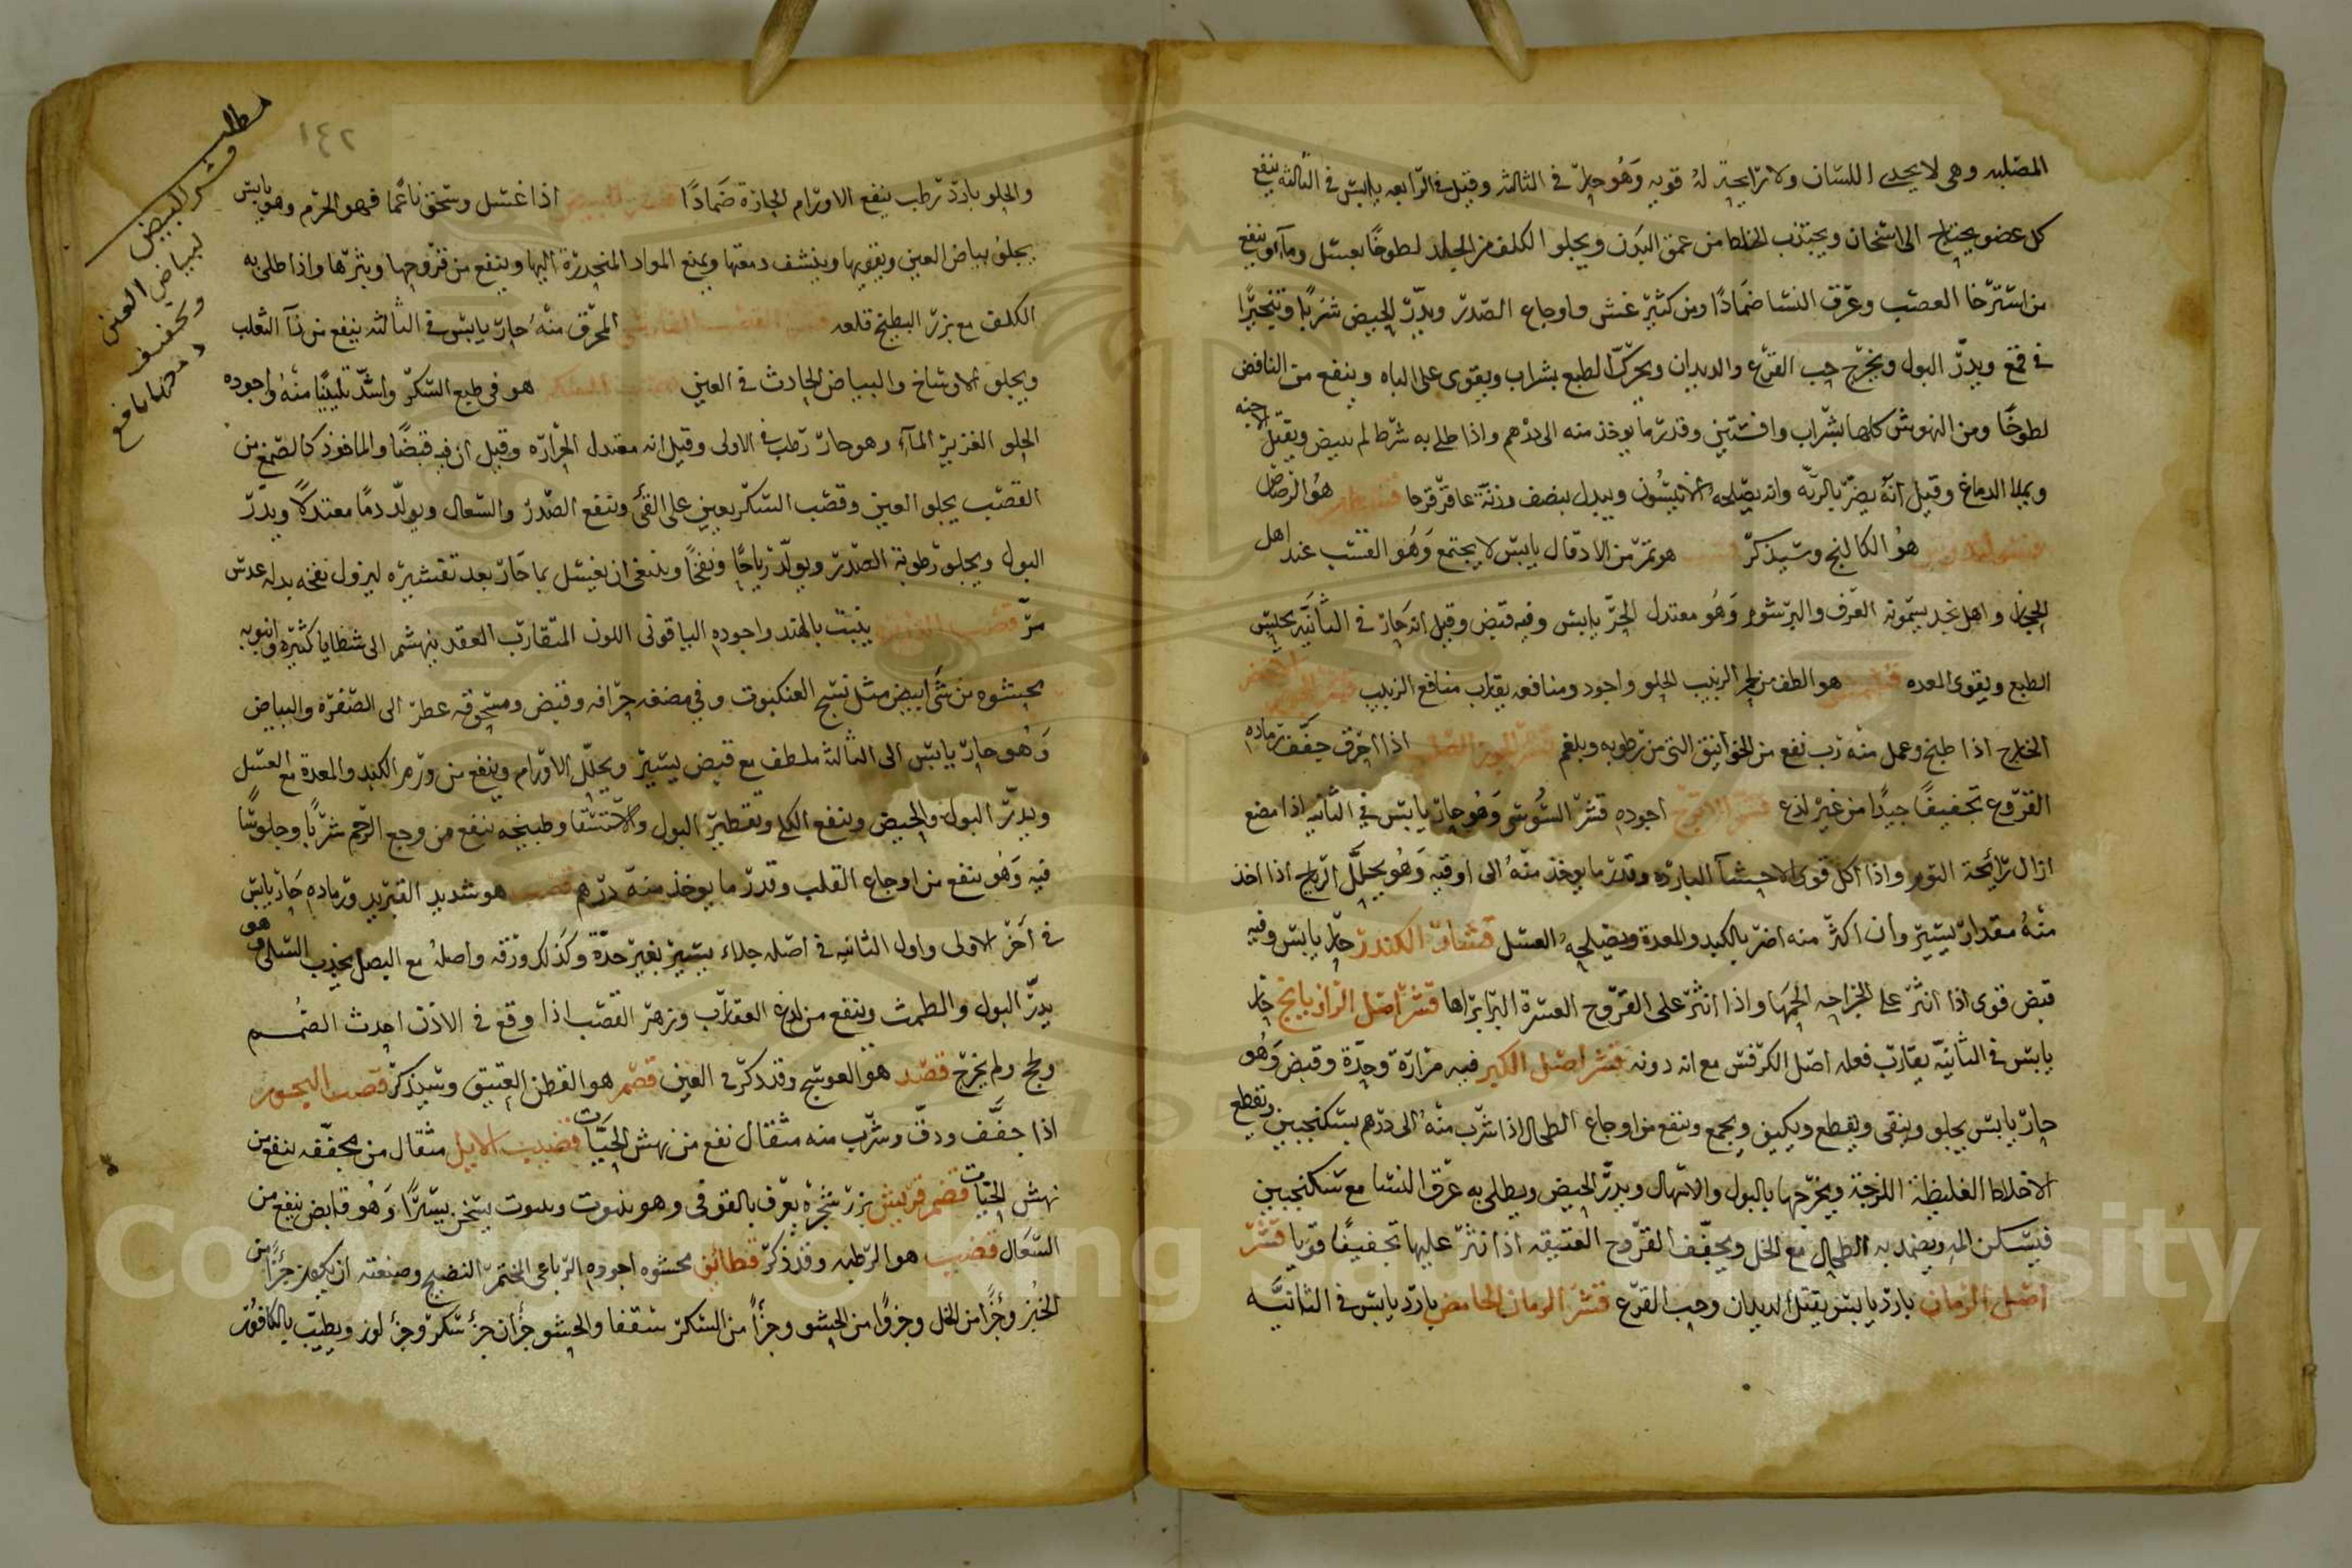 المصلبه وهى لا يحدي اللسان ولا رايحة له قويه وهو حار فى الثالثه وقيل فى الرابعه يابس فى الثالثه ينفع
كل عضو يحتاج الى اسخان ويجتذب الخلط من عمق البدن ويجلو الكلف من الجلد لطوخا بعسل وماء وينفع
من استرخا العصب وعرق النسا ضمادا ومن كثير غشى واوجاع الصدر ويدر الحيض شربا وتبخيرا
فى قمع ويدر البول ويخرج حب القرع والديدان ويحرك الطبع بشراب ويقوى على الباه وينفع من النافض
لطوخا ومن النهوش كلها بشراب وافسنتين وقدر ما يوخذ منه الى درهم واذا طلى به شرط لم يبيض ويقتل الاجنه
ويملا الدماغ وقيل انه يضر بالريه وانه يصلحه الانيسون ويبدل بنصف وزنه عاقر قرحا هو الرصاص
هو الكالنج وسيذكر هو تمر من الادقال يابس لا يجتمع وهو القسب عند اهل
الحجاز واهل نجد يسمونه العرف والبرشوم وهو معتدل الحر يابس وفيه قبض وقيل انه حار فى الثانيه يحبس
الطبع ويقوى المعده هو الطف من لحم الزبيب الحلو واجود ومنافعه يقارب منافع الزبيب قشر الجوز الاخضر
الخارج اذا طبخ وعمل منه رب نفع من الخوانيق التى من رطوبه وبلغم قشر الجوز الصلب اذا احرق جفف رماده
القروع تجفيفا جيدا من غير لذع قشر الاترج اجوده قشر السوسى وهو حار يابس فى الثانيه اذا مضغ
ازال رائحة الثوم واذا اكل قوى الاحشا البارده وقدر ما يوخذ منه الى اوقيه وهو يحلل الرياح اذا اخذ
منه مقدار يسير وان اكثر منه اضر بالكبد والمعدة ويصلحه العسل قشار الكندر حار يابس وفيه
قبض قوى اذا انثر على الجراحه الحمها واذا انثر على القروح العسرة البرا براها قشر اصل الرازيانج حار
يابس فى الثانيه يقارب فعله اصل الكرفس مع انه دونه قشر اصل الكبر فيه مرارة وحدة وقبض وهو
حار يابس يجلو وينقى ويقطع ويكيف ويجمع وينفع من اوجاع الطحال اذا شرب منه الى درهم بسكنجبين ويقطع
الاخلاط الغليظة اللزجة ويخرجها بالبول والاسهال ويدر الحيض ويطلى به عرق النسا مع سكنجبين
فيسكن المه ويضمد به الطحال مع الخل ويجفف القروح العتيقه اذا نثر عليها تجفيفا قويا قشر
اصل الرمان بارد يابس يقتل الديدان وحب القرع قشر الرمان الحامض بارد يابس فى الثانيه
١٤٢
مطلب
قشر البيض
لبياض العين
وتجفيف
والحلو بارد رطب ينفع الاورام الحارة ضمادا قشر البيض اذا غسل وسحق ناعما فهو الخرم وهو يابس
يجلو بياض العين ويقويها وينشف دمعتها ويمنع المواد المنحدرة اليها وينفع من قروحها وبثرها واذا طلى به
الكلف مع بزر البطيخ قلعه المحرق منه حار يابس فى الثالثه ينفع من داء الثعلب
ويجلو الاوساخ والبياض الحادث فى العين قصب السكر هو فى طبع السكر واشد تليينا منه واجوده
الحلو الغزير الماء وهو حار رطب فى الاولى وقيل انه معتدل الحرارة وقيل ان فيه قبضا والماخوذ كالصمغ من
القصب يجلو العين وقصب السكر يعين على القئ وينفع الصدر والسعال ويولد دما معتدلا ويدر
البول ويجلو رطوبة الصدر ويولد رياحا ونفخا وينبغى ان يغسل بما حار بعد تقشيره ليزول نفخه بدله عدس
مر قصب الذريره ينبت بالهند واجوده الياقوتى اللون المتقارب العقد ينهشم الى شظايا كثيرة وانبوبه
محشوه من شى ابيض مثل نسج العنكبوت وفى مضغه حرافه وقبض ومسحوقه عطر الى الصفرة والبياض
وهو حار يابس الى الثالثه ملطف مع قبض يسير ويحلل الاورام وينفع من ورم الكبد والمعدة مع العسل
ويدر البول والحيض وينفع الكلى وتقطير البول والاستسقا وطبيخه ينفع من وجع الرحم شربا وجلوسا
فيه وهو ينفع من اوجاع القلب وقدر ما يوخذ منه درهم قصب هو شديد التبريد ورماده حار يابس
فى آخر الاولى واول الثانيه فى اصله جلاء يسير بغير حدة وكذلك ورقه واصله مع البصل يجذب السلى وهو
يدر البول والطمث وينفع من لدغ العقارب وزهر القصب اذا وقع فى الاذن احدث الصمم
ولحج ولم يخرج قصد هو العوسج وقد ذكر فى العين قصم هو القطن العتيق وسيذكر قصب البحور
اذا جفف ودق وشرب منه مثقال نفع من نهش الحيات قضيب الايل مثقال من مجففه ينفع من
نهش الحيات قضم قريش بزر شجرة يعرف بالقوفى وهو ينبوت وينبوت يسخن يسيرا وهو قابض ينفع من
السعال قضيب هو الرطبه وقد ذكر قطائف محشوه اجوده الرباعى المختمر النضيج وصنعته ان يكون جزأ من
الخبز وجزأ من الخل وجزوا من الحشو وجزأ من السكر شقفا والحشو جزأن جزء سكر وجزء لوز ويطيب بالكافور